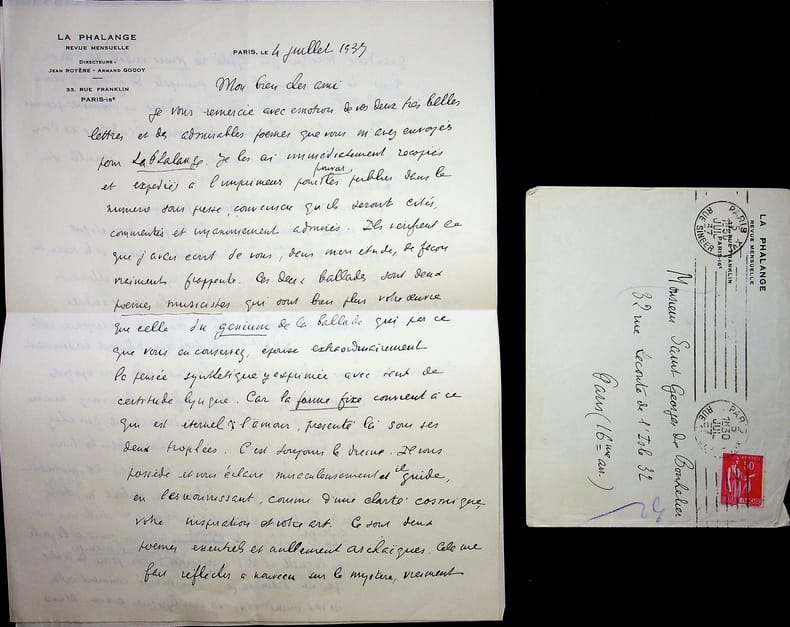 LA PHALANGE
REVUE MENSUELLE
DIRECTEURS:
JEAN ROYÈRE - ARMAND GODOY
33, RUE FRANKLIN
PARIS-16e
PARIS, LE 4 juillet 1937
Mon bien cher ami
Je vous remercie avec émotion de vos deux très belles
lettres et des admirables poèmes que vous m'avez envoyés
pour La Phalange. Je les ai immédiatement recopiés
et expédiés à l'imprimeur pour pouvoir les publier dans le
numéro sous presse, convaincu qu'ils seront cités,
commentés et unanimement admirés. Ils vérifient ce
que j'avais écrit de vous, dans mon étude, de façon
vraiment frappante. Ces deux ballades sont deux
poèmes musicistes qui sont bien plus votre œuvre
que celle du genre de la ballade qui par ce
que vous en conservez, épouse extraordinairement
la pensée synthétique y exprimée avec tant de
certitude lyrique. Car la forme fixe convient à ce
qui est éternel : l'amour, présenté là sous ses
deux trophées. C'est toujours le drame. Il vous
possède et vous éclaire miraculeusement et il guide,
en l'nourrissant, comme d'une clarté cosmique,
votre inspiration et votre art. Ce sont deux
poèmes essentiels et nullement archaïques. Cela me
fait réfléchir à nouveau sur le mystère, vraiment
LA PHALANGE
REVUE MENSUELLE
33, RUE FRANKLIN
PARIS-16e
PARIS
RUE SINGER
Monsieur Saint Georges de Bouhélier
32 rue Leconte de l'Isle 32
Paris (16me arr.)
PARIS
RUE SINGER
50